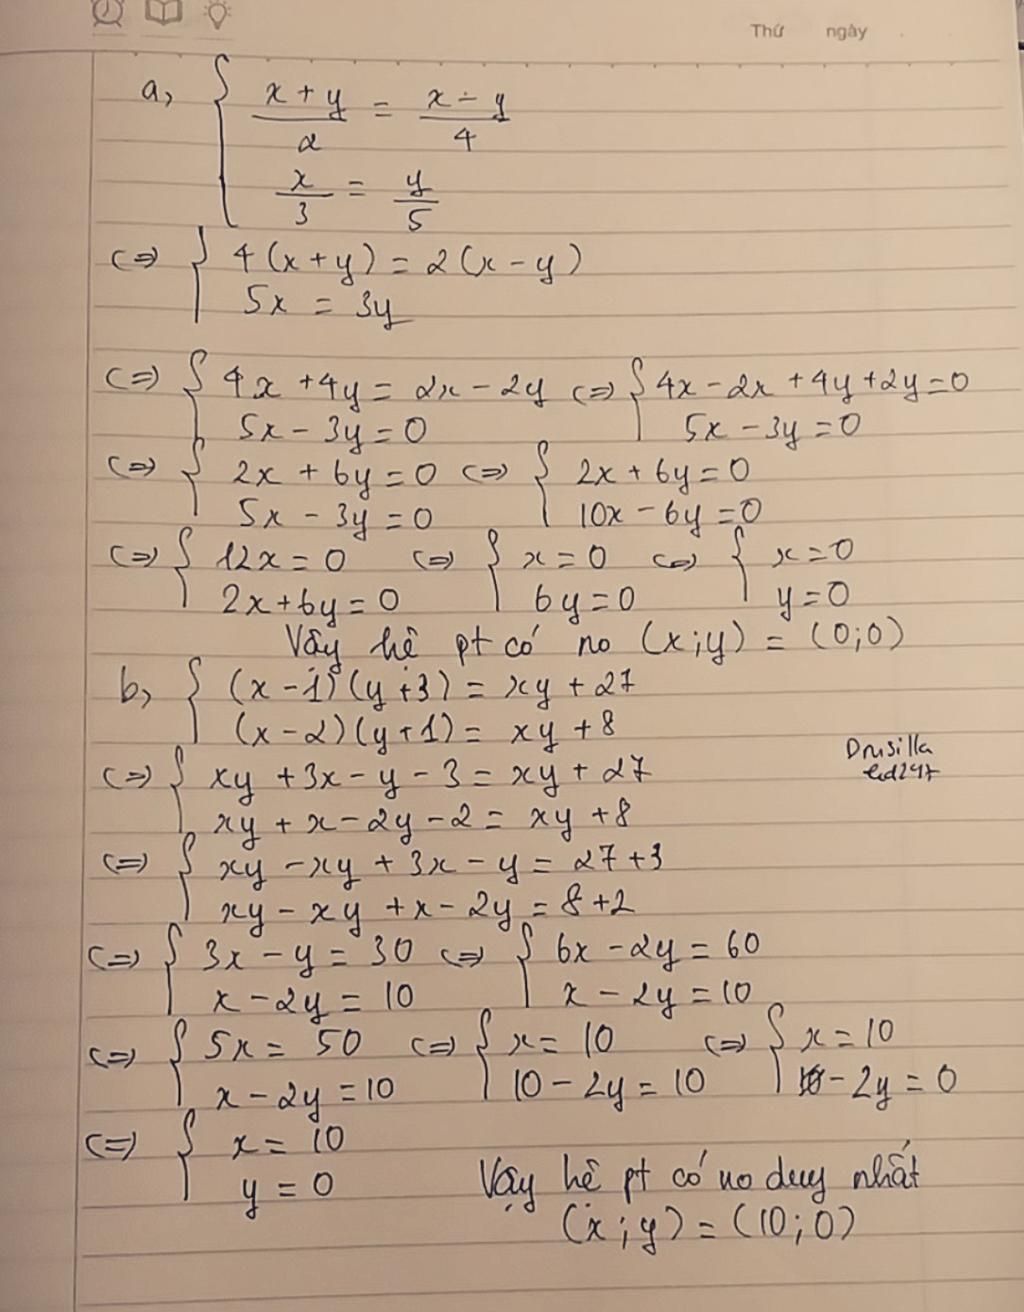 Thứ ngày
a, { (x + y)/2 = (x - y)/4
x/3 = y/5
<=> { 4(x + y) = 2(x - y)
5x = 3y
<=> { 4x + 4y = 2x - 2y <=> { 4x - 2x + 4y + 2y = 0
5x - 3y = 0 5x - 3y = 0
<=> { 2x + 6y = 0 <=> { 2x + 6y = 0
5x - 3y = 0 10x - 6y = 0
<=> { 12x = 0 <=> { x = 0 <=> { x = 0
2x + 6y = 0 6y = 0 y = 0
Vậy hê pt có no (x; y) = (0; 0)
b, { (x - 1)(y + 3) = xy + 27
(x - 2)(y + 1) = xy + 8
Drusilla
<=> { xy + 3x - y - 3 = xy + 27
xy + x - 2y - 2 = xy + 8
<=> { xy - xy + 3x - y = 27 + 3
xy - xy + x - 2y = 8 + 2
<=> { 3x - y = 30 <=> { 6x - 2y = 60
x - 2y = 10 x - 2y = 10
<=> { 5x = 50 <=> { x = 10 <=> { x = 10
x - 2y = 10 10 - 2y = 10 - 2y = 0
<=> { x = 10
y = 0 Vậy hê pt có no duy nhất
(x; y) = (10; 0)